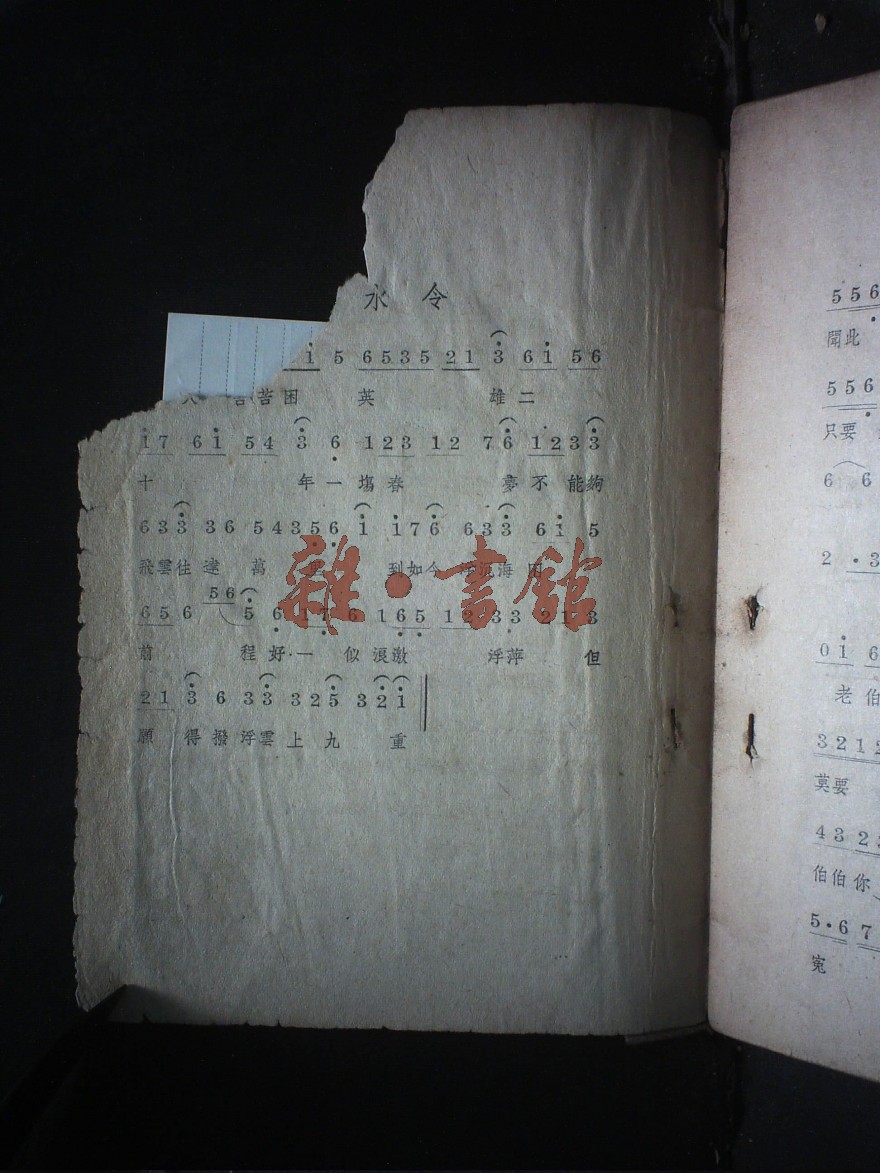 永 令
1̇ 5 6535 21 3̇ 61̇ 56
苦困 英 雄二
1̇7 61̇ 54 3̇ 6̣ 123 12 76̇ 1233̇
十 年一塲春 夢不能夠
633̇ 36 54356 1̇ 1̇76̇ 633̇ 61̇ 5
飛雲往達 萬 里 到如今 沉海困
656 56 5̇ 6̣ 1
前 程好·一 似浪激 浮萍 但
21 3̇ 6 33̇ 325̇ 32̇1̇
願 得撥浮雲上九 重
雜·書館
556
聞此
556
只要
6 6
2 ·3
01̇ 6
老伯
3212
莫要
4323
伯伯你
5·67
寃